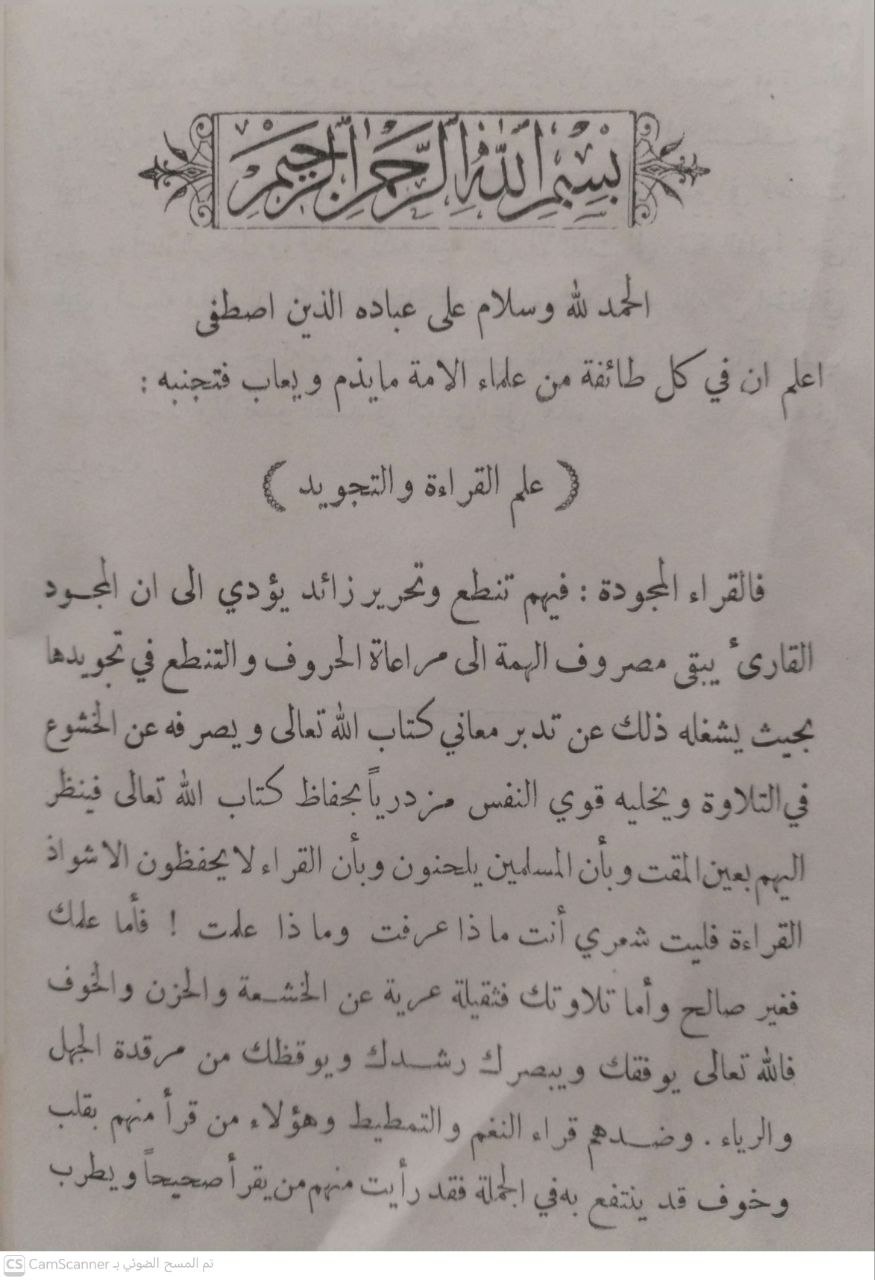 بسم الله الرحمن الرحيم
الحمد لله وسلام على عباده الذين اصطفى
اعلم ان في كل طائفة من علماء الامة مايذم ويعاب فتجنبه :
( علم القراءة والتجويد )
فالقراء المجودة : فيهم تنطع وتحرير زائد يؤدي الى ان المجود
القارئ يبقى مصروف الهمة الى مراعاة الحروف والتنطع في تجويدها
بحيث يشغله ذلك عن تدبر معاني كتاب الله تعالى ويصرفه عن الخشوع
في التلاوة ويخليه قوي النفس مزدرياً بحفاظ كتاب الله تعالى فينظر
اليهم بعين المقت وبأن المسلمين يلحنون وبأن القراء لايحفظون الاشواذ
القراءة فليت شعري أنت ماذا عرفت وماذا علمت ! فأما علمك
فغير صالح وأما تلاوتك فثقيلة عرية عن الخشعة والحزن والخوف
فالله تعالى يوفقك ويبصرك رشدك ويوقظك من مرقدة الجهل
والرياء . وضدهم قراء النغم والتمطيط وهؤلاء من قرأ منهم بقلب
وخوف قد ينتفع به في الجملة فقد رأيت منهم من يقرأ صحيحاً ويطرب
CS CamScanner تم المسح الضوئي بـ